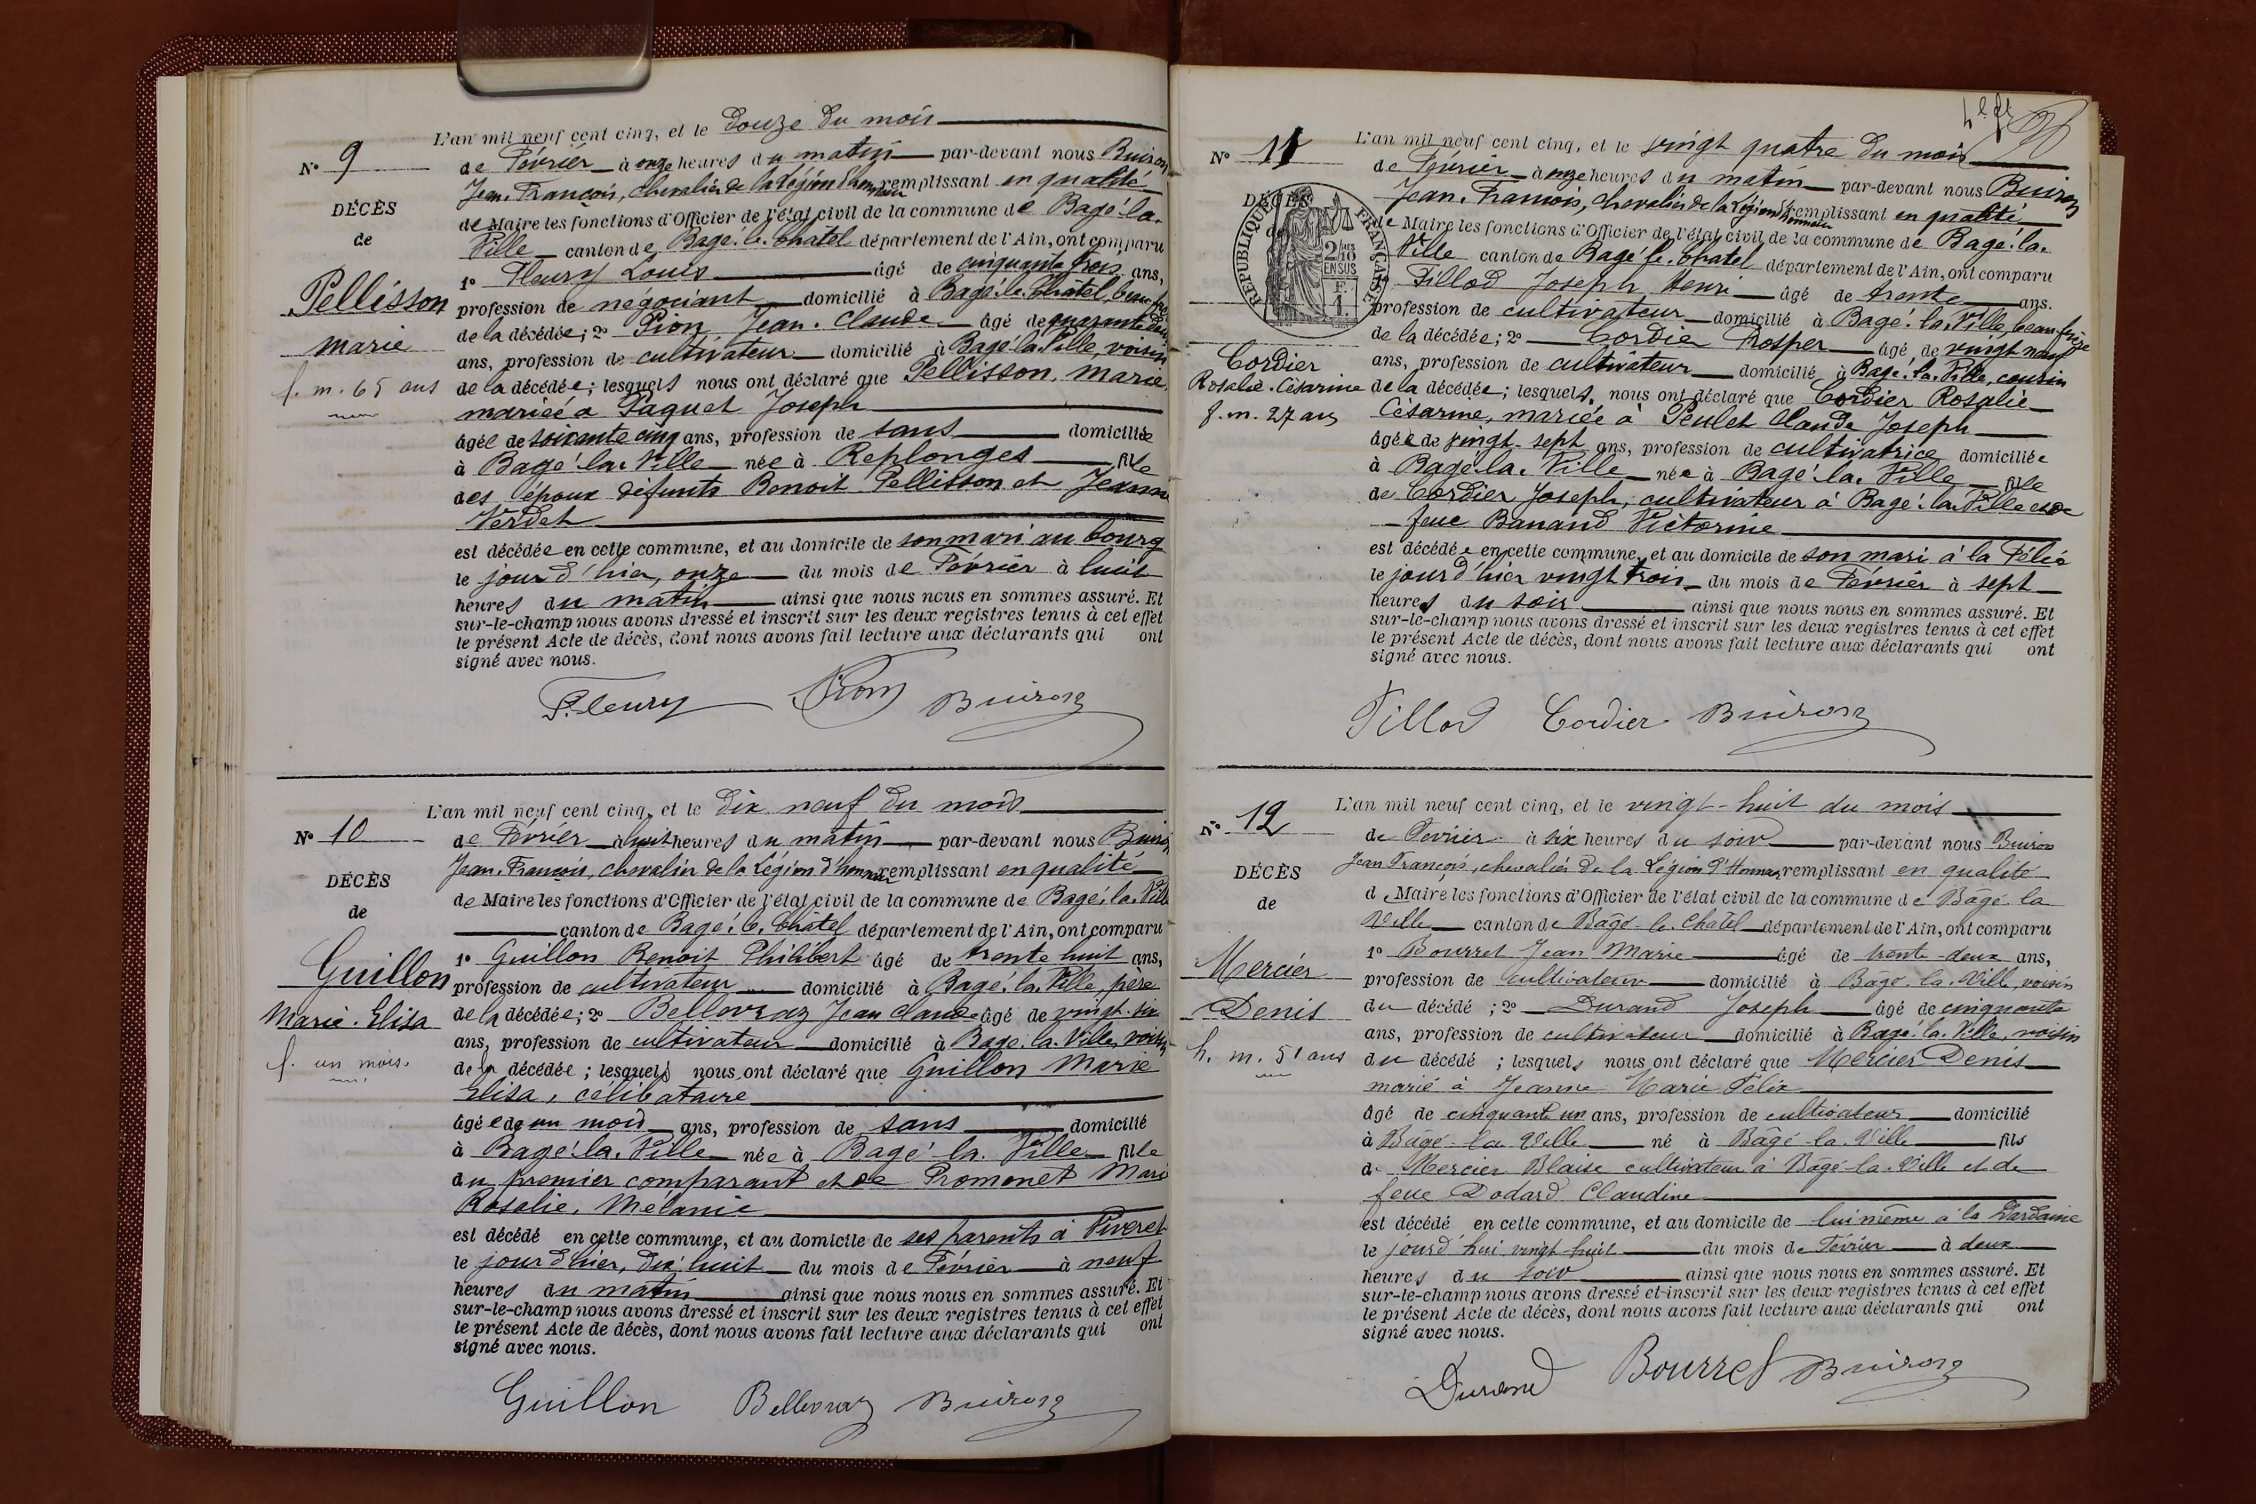 L'an mil neuf cent cinq, et le douze du mois
N° 9
de Février à onze heures du matin par-devant nous Buiron
Jean-François, chevalier de la Légion d'honneur remplissant en qualité
DÉCÈS
de Maire les fonctions d'Officier de l'état civil de la commune de Bagé-la-
de
Ville canton de Bagé-le-Châtel département de l'Ain, ont comparu
1° Fleury Louis âgé de cinquante trois ans,
Pellisson
profession de négociant domicilié à Bagé-le-Châtel, beau frère
de la décédée; 2° Pion Jean-Claude âgé de quarante deux
Marie
ans, profession de cultivateur domicilié à Bagé-la-Ville, voisin
f. m. 65 ans
de la décédée; lesquels nous ont déclaré que Pellisson, Marie,
mariée à Paquet Joseph
âgée de soixante cinq ans, profession de sans domiciliée
à Bagé-la-Ville née à Replonges fille
des époux défunts Benoit Pellisson et Jeanne
Verdet
est décédée en cette commune, et au domicile de son mari au bourg
le jour d'hier, onze du mois de Février à huit
heures du matin ainsi que nous nous en sommes assuré. Et
sur-le-champ nous avons dressé et inscrit sur les deux registres tenus à cet effet
le présent Acte de décès, dont nous avons fait lecture aux déclarants qui ont
signé avec nous.
Fleury Pion Buiron
L'an mil neuf cent cinq, et le dix neuf du mois
N° 10
de Février à huit heures du matin par-devant nous Buiron
Jean-François, chevalier de la Légion d'honneur remplissant en qualité
DÉCÈS
de Maire les fonctions d'Officier de l'état civil de la commune de Bagé-la-Ville
de
canton de Bagé-le-Châtel département de l'Ain, ont comparu
1° Guillon Benoit Philibert âgé de trente huit ans,
Guillon
profession de cultivateur domicilié à Bagé-la-Ville, père
Marie-Elisa
de la décédée; 2° Bellevraz Jean Claude âgé de vingt-six
ans, profession de cultivateur domicilié à Bagé-la-Ville, voisin
f. un mois.
de la décédée; lesquels nous ont déclaré que Guillon Marie
Elisa, célibataire
âgée de un mois ans, profession de sans domicilié
à Bagé-la-Ville née à Bagé-la-Ville fille
du premier comparant et de Promonet Marie
Rosalie, Mélanie
est décédé en cette commune, et au domicile de ses parents à Piveret
le jour d'hier, dix-huit du mois de Février à neuf
heures du matin ainsi que nous nous en sommes assuré. Et
sur-le-champ nous avons dressé et inscrit sur les deux registres tenus à cet effet
le présent Acte de décès, dont nous avons fait lecture aux déclarants qui ont
signé avec nous.
Guillon Bellevraz Buiron
L'an mil neuf cent cinq, et le vingt quatre du mois
N° 11
de Février à onze heures du matin par-devant nous Buiron
Jean-François, chevalier de la Légion d'honneur remplissant en qualité
DÉCÈS
RÉPUBLIQUE FRANÇAISE
2/10 EN SUS
de Maire les fonctions d'Officier de l'état civil de la commune de Bagé-la-
Ville canton de Bagé-le-Châtel département de l'Ain, ont comparu
Tillod Joseph Henri âgé de trente ans.
profession de cultivateur domicilié à Bagé-la-Ville, beau-frère
de la décédée; 2° Cordier Prosper âgé de vingt neuf
Cordier
ans, profession de cultivateur domicilié à Bagé-la-Ville, cousin
Rosalie-Césarine
de la décédée; lesquels nous ont déclaré que Cordier Rosalie
f. m. 27 ans
Césarine, mariée à Peulet Claude Joseph
âgée de vingt-sept ans, profession de cultivatrice domiciliée
à Bagé-la-Ville née à Bagé-la-Ville fille
de Cordier Joseph, cultivateur à Bagé-la-Ville et de
feue Banand Victorine
est décédée en cette commune, et au domicile de son mari à la
le jour d'hier vingt trois du mois de Février à sept
heures du soir ainsi que nous nous en sommes assuré. Et
sur-le-champ nous avons dressé et inscrit sur les deux registres tenus à cet effet
le présent Acte de décès, dont nous avons fait lecture aux déclarants qui ont
signé avec nous.
Tillod Cordier Buiron
L'an mil neuf cent cinq, et le vingt-huit du mois
N° 12
de Février à six heures du soir par-devant nous Buiron
Jean François, chevalier de la Légion d'Honneur remplissant en qualité
DÉCÈS
de Maire les fonctions d'Officier de l'état civil de la commune de Bâgé-la
de
Ville canton de Bâgé-le-Châtel département de l'Ain, ont comparu
1° Bourret Jean Marie âgé de trente-deux ans,
Mercier
profession de cultivateur domicilié à Bâgé-la-Ville, voisin
Denis
du décédé; 2° Durand Joseph âgé de cinquante
ans, profession de cultivateur domicilié à Bagé-la-Ville, voisin
h. m. 51 ans
du décédé; lesquels nous ont déclaré que Mercier Denis
marié à Jeanne Marie Félix
âgé de cinquante un ans, profession de cultivateur domicilié
à Bâgé-la-Ville né à Bâgé-la-Ville fils
de Mercier Blaise cultivateur à Bâgé-la-Ville et de
feue Dodard Claudine
est décédé en cette commune, et au domicile de lui même à la Dardaine
le jourd'hui vingt-huit du mois de Février à deux
heures du soir ainsi que nous nous en sommes assuré. Et
sur-le-champ nous avons dressé et inscrit sur les deux registres tenus à cet effet
le présent Acte de décès, dont nous avons fait lecture aux déclarants qui ont
signé avec nous.
Durand Bourret Buiron